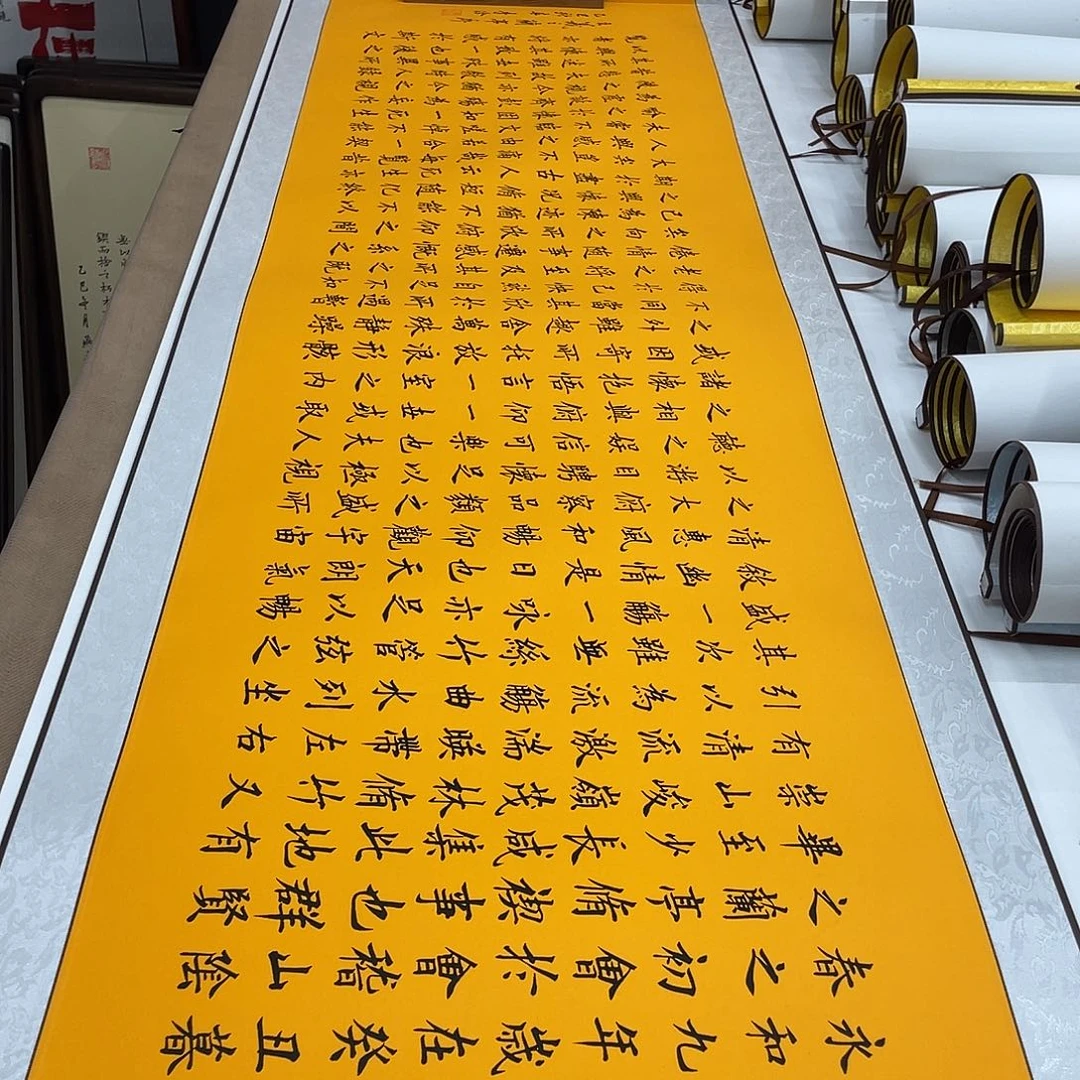 永和九年歲在癸丑暮
春之初會於會稽山陰
之蘭亭脩禊事也群賢
畢至少長咸集此地有
崇山峻嶺茂林脩竹又
有清流激湍暎帶左右
引以為流觴曲水列坐
其次雖無絲竹管弦之
盛一觴一詠亦足以暢
敘幽情是日也天朗氣
清惠風和暢仰觀宇宙
之大俯察品類之盛所
以遊目騁懷足以極視
聽之娛信可樂也夫人
之相與俯仰一世或取
諸懷抱悟言一室之內
或因寄所托放浪形骸
之外雖趣舍萬殊靜躁
不同當其欣於所遇暫
得於己快然自足不知
老之將至及其所之既
惓情隨事遷感慨係之
矣向之所欣俯仰之間
已為陳迹猶不能不以
之興懷況脩短隨化終
期於盡古人云死生亦
大矣豈不痛哉每覽昔
人興感之由若合一契
未嘗不臨文嗟悼不能
喻之於懷固知一死生
為虛誕齊彭殤為妄作
後之視今亦猶今之視
昔悲夫故列敘時人錄
其所述雖世殊事異所
以興懷其致一也後之
覽者亦將有感於斯文